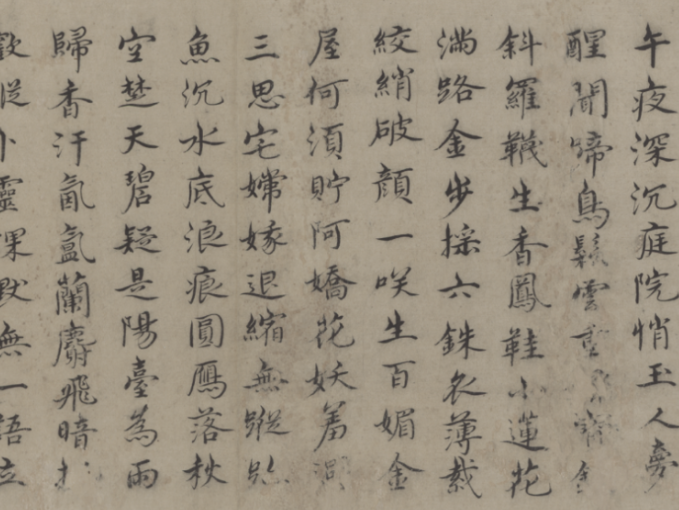 午夜深沉庭院悄玉人夢
醒聞啼鳥鬆雲
斜羅襪生香鳳鞋小蓮花
滿路金步採六銖衣薄裁
絞綃破顏一咲生百媚金
屋何須貯阿嬌花妖羞
三思宅嫦娥退縮無蹤
魚沉水底浪痕圓鴈落秋
空楚天碧疑是陽臺為雨
歸香汗氤氳蘭麝飛暗
卜靈課默無一語立